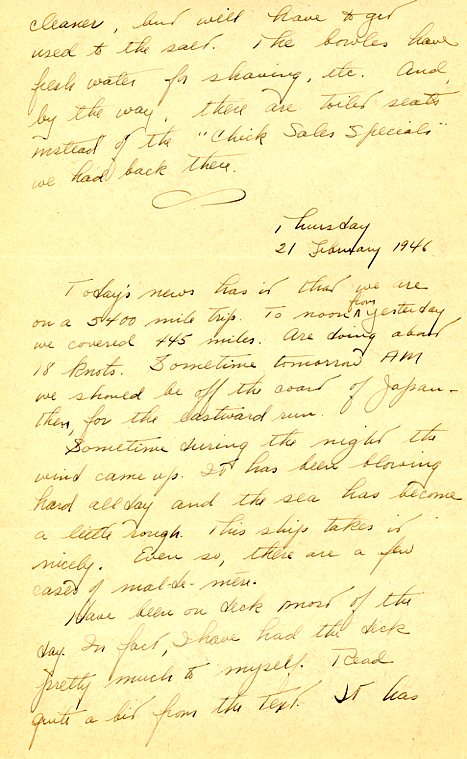 cleaner, but will have to get
used to the salt. The bowles have
fresh water for shaving, etc. And,
by the way, there are toilet seats
instead of the "Chick Sales Specials"
we had back there.
Thursday
21 February 1946
Today's news has it that we are
on a 5400 mile trip. To noon from yesterday
we covered 445 miles. Are doing about
18 knots. Sometime tomorrow AM
we should be off the coast of Japan -
then, for the eastward run.
Sometime during the night the
wind came up. It has been blowing
hard all day and the sea has become
a little rough. This ship takes it
nicely. Even so, there are a few
cases of mal-de-mere.
Have been on deck most of the
day. In fact, I have had the deck
pretty much to myself. Read
quite a bit from the text. It has